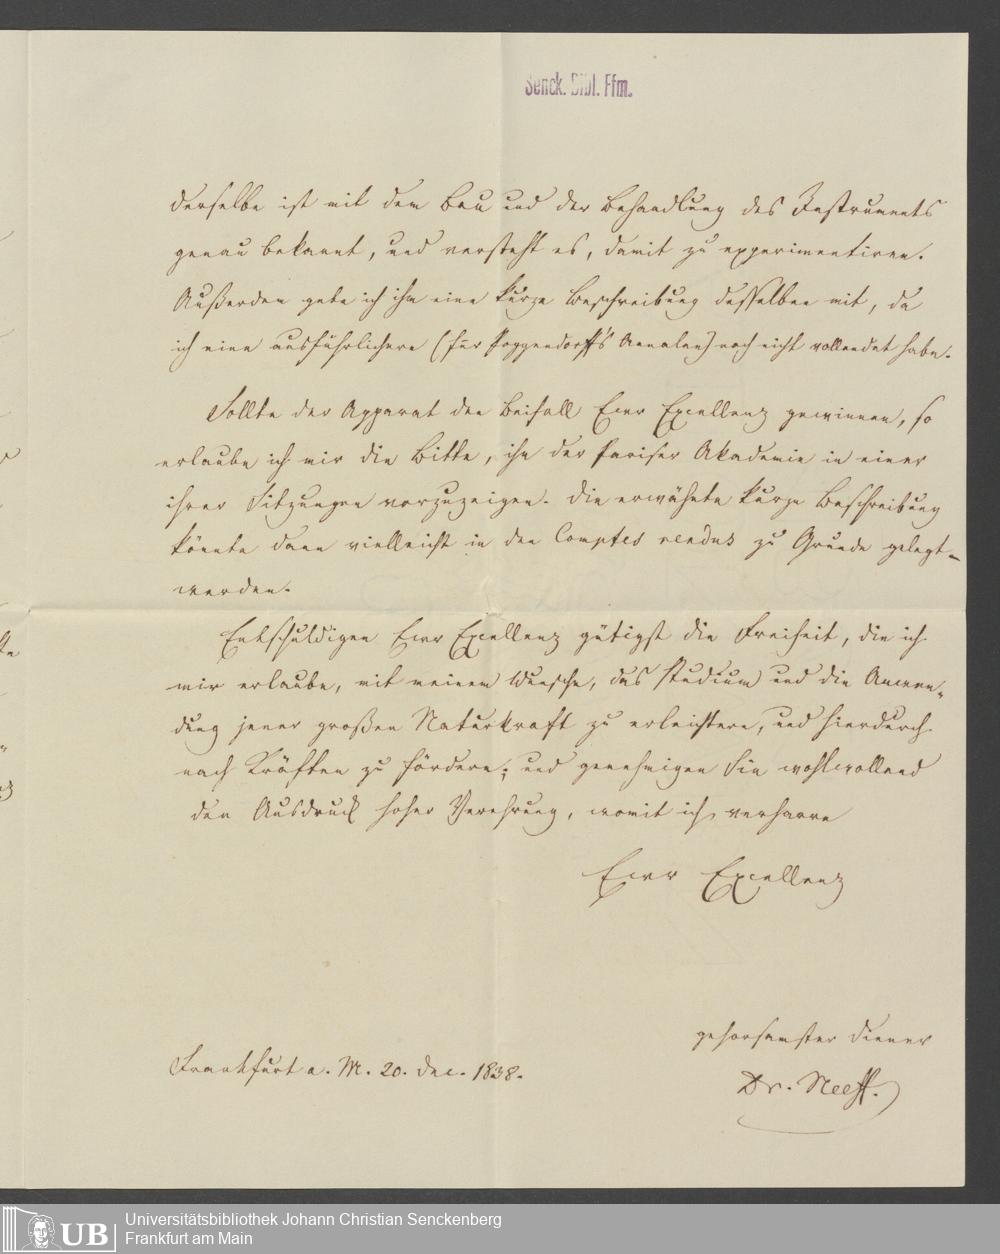 Senck. Bibl. Ffm.
derselbe ist mit dem Bau und der Behandlung des Instruments
genau bekannt, und versteht es, damit zu experimentiren.
Außerdem gebe ich ihm eine kurze Beschreibung desselben mit, da
ich eine ausführlichere (für Poggendorff's Annalen) noch nicht vollendet habe.
Sollte der Apparat den Beifall Ewr Excellenz gewinnen, so
erlaube ich mir die Bitte, ihn der Pariser Akademie in einer
ihrer Sitzungen vorzuzeigen. Die erwähnte kurze Beschreibung
könnte dann vielleicht in den Comptes rendus zu Grunde gelegt
werden.
Entschuldigen Ewr Excellenz gütigst die Freiheit, die ich
mir erlaube, mit meinem Wunsche, das Studium und die Anwen-
dung jener großen Naturkraft zu erleichtern, und hierdurch
nach Kräften zu fördern; und genehmigen Sie wohlwollend
den Ausdruck hoher Verehrung, womit ich verharre
Ewr Excellenz
gehorsamster Diener
Frankfurt a. M. 20. Dec. 1838.
Dr. Neeff.
UB
Universitätsbibliothek Johann Christian Senckenberg
Frankfurt am Main